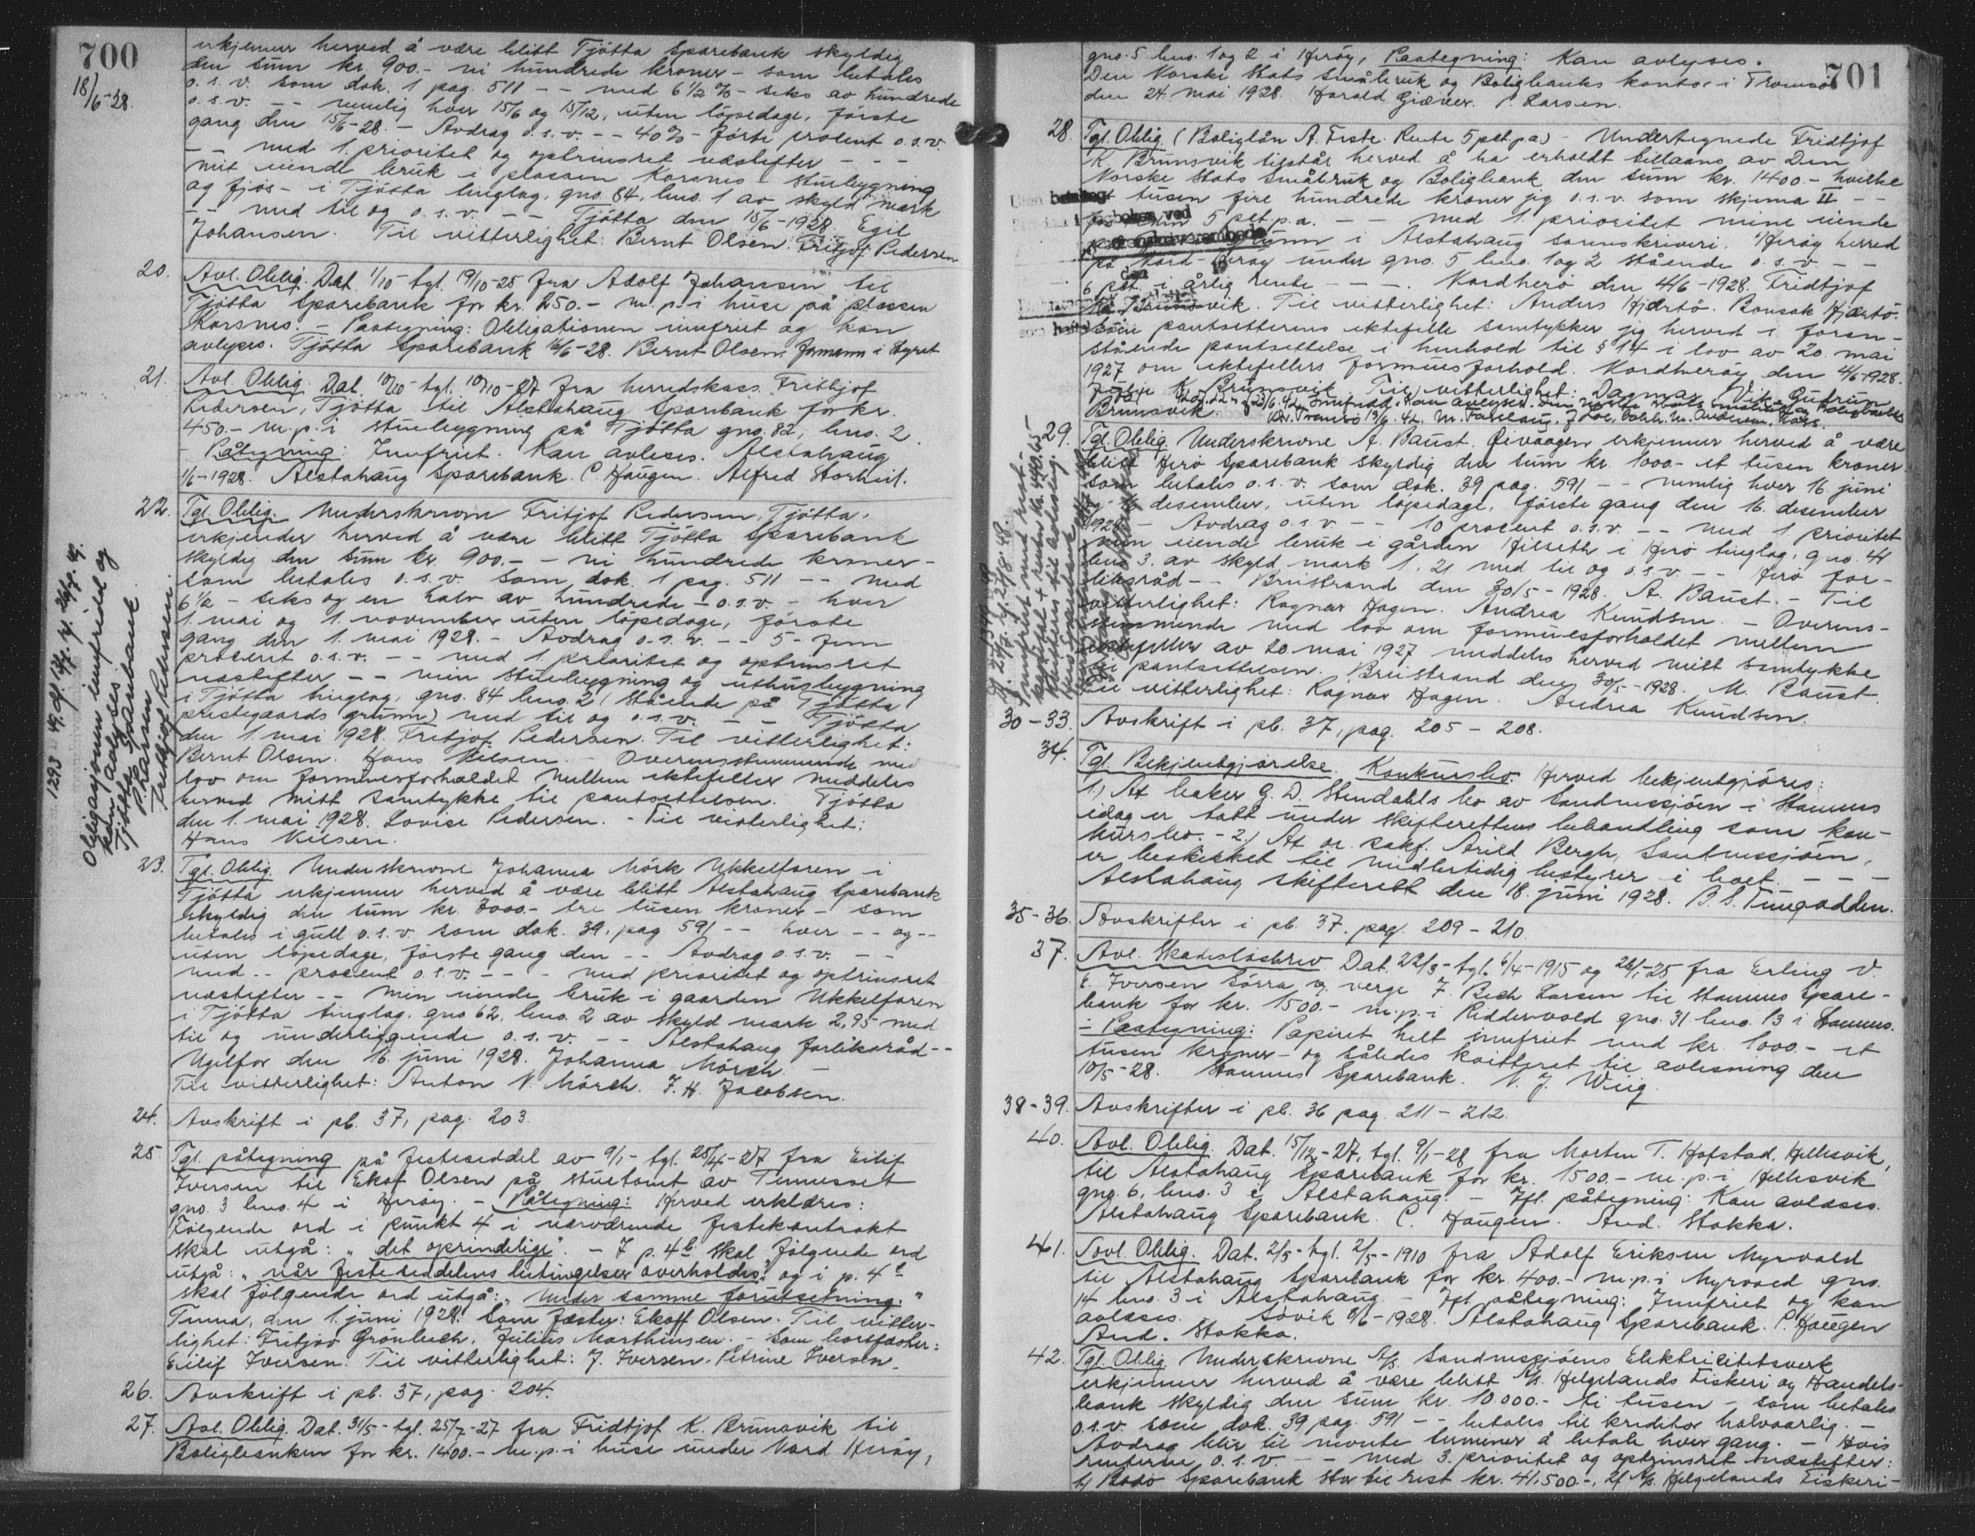 700
18/6-28.
erkjenner herved å være blitt Tjötta Sparebank skyldig
den sum kr. 900.- ni hundrede kroner - som betales
o.s.v. som dok. 1 pag. 511 - - med 6 1/2 % - seks av hundrede
o.s.v. - - nemlig hver 15/6 og 15/12, uten löpedage, förste
gang den 15/6-28. - Avdrag o.s.v. - - 40 % - förti procent o.s.v.
- - med 1. prioritet og optrinsret næstefter - - -
mit eiende bruk i plassen Karsnes - stuebygning
og fjös - i Tjötta tinglag, gno. 84, bno. 1 av skyld mark
- - med til og o.s.v. - - Tjötta den 15/6-1928. Egil
Johansen. Til vitterlighet: Bernt Olsen. Fritjof Pedersen
20. Avl. Oblig. Dat. 1/10 - tgl. 19/10-25 fra Adolf Johansen til
Tjötta Sparebank for kr. 250.- m.p.i huse på plassen
Karsnes. - Paategning: Obligationen innfriet og kan
avlyses. Tjötta Sparebank 16/6-28. Bernt Olsen, formann i styret
21. Avl. Oblig. Dat. 10/10 - tgl. 19/10-27 fra herredskass. Frithjof
Pedersen, Tjötta til Alstahaug Sparebank for kr.
450.- m.p.i stuebygning på Tjötta gno. 82, bno. 2.
- Påtegning: Innfriet. Kan avleses. Alstahaug
1/6-1928. Alstahaug Sparebank. C. Haugen. Alfred Storheil.
22. Tgl. Oblig. Underskrevne Fritjof Pedersen, Tjötta,
erkjender herved å være blitt Tjötta Sparebank
skyldig den sum kr. 900.- - ni hundrede kroner -
som betales o.s.v. som dok. 1 pag. 511 - - med
6 1/2 - seks og en halv av hundrede - o.s.v. - hver
1 mai og 1. november uten löpedage, förste
gang den 1. mai 1928. - Avdrag o.s.v. - - 5 - fem
procent o.s.v. - - med 1. prioritet og optrinsret
næstefter - - min stuebygning og uthusbygning
i Tjötta tinglag, gno. 84 bno. 2 (stående på Tjötta
prestegaards grunn) med til og o.s.v. - - Tjötta
den 1 mai 1928. Fritjof Pedersen. Til vitterlighet:
Bernt Olsen. Hans Nilsen. - Overensstemmende med
lov om formuesforholdet mellem ektefeller meddeles
herved mitt samtykke til pantsettelsen. Tjötta
den 1. mai 1928. Lovise Pedersen. - Til vitterlighet:
Hans Nilsen.
1293
Obligasjonen innfridd og
kan avlyses
Tjøtta Sparebank
P. Larsen
Frithjof Pedersen
23. Tgl. Oblig. Underskrevne Johanna Mörk Ukkelfaren i
Tjötta erkjenner herved å være blitt Alstahaug Sparebank
skyldig den sum kr. 3000.- tre tusen kroner - som
betales i gull o.s.v. som dok. 39, pag 591 - - hver - - og - -
uten löpedage, förste gang den - - Avdrag o.s.v. - -
med - - procent o.s.v. - - - med prioritet og optrinsret
næstefter - - min eiende bruk i gaarden Ukkelfaren
i Tjötta tinglag, gno 62, bno. 2 av skyld mark 2,95 med
til og underliggende o.s.v. - - Alstahaug forliksråd - -
Ugelfor den 16. juni 1928. Johanna Mörch. -
Til vitterlighet: Anton N. Mörch. J. H. Jacobsen.
24. Avskrift i pb. 37, pag. 203.
25. Tgl. påtegning på festeseddel av 9/1 - tgl. 25/4-27 fra Eilif
Iversen til Ekof Olsen på stuetomt av Tennesset
gno. 3 bno. 4 i Heröy. - Påtegning: Herved erklæres:
Følgende ord i punkt 4 i nærværende festekontrakt
skal utgå: "det oprindelige". - I p. 4b skal følgende ord
utgå: "når festeseddelens betingelser overholdes" og i p. 4e
skal følgende ord utgå: "under samme forutsetning."
Tenna, den 1. juni 1928. Som fæster: Ekoff Olsen. Til vitter-
lighet: Fritjov Grönbech. Julius Marthinsen. - Som bortfæster:
Eilif Iversen. Til vitterlighet: J. Iversen. Petrine Iversen.
26. Avskrift i pb. 37, pag. 204.
27. Avl. Oblig. Dat. 31/5 - tgl. 25/7-27 fra Fridtjof K. Brunsvik til
Boligbanken for kr. 1400.- m.p.i huse under Nord Heröy,
701
gno. 5 bno. 1 og 2 i Heröy, Paategning: Kan avlyses.
Den Norske Stats Småbruk og Boligbanks kontor i Tromsö
den 24. mai 1928. Harald Giæver. P. Larsen.
28. Tgl. Oblig. (Boliglån A. Feste. Rente 5 pct. pa) - Undertegnede Fridtjof
K. Brunsvik tilstår herved å ha erholdt tillaans av Den
Norske Stats Småbruk og Boligbank den sum kr. 1400 - hvilke
ett tusen fire hundrede kroner jeg o.s.v. som skjema II - -
5 pct p.a. - - med 1 prioritet mine eiende
grunn i Alstahaug sorenskriveri. Heröy herred
på Nord-Heröy under gno. 5 bno. 1 og 2 stående o.s.v. - -
6 pct. i årlig rente - - -. Nordherö den 4/6-1928. Fridtjof
K. Brunsvik. Til vitterlighet: Anders Hjærtö. Bonsak Hjærtö.
Som pantsetterens ektefelle samtykker jeg herved i foran-
stående pantsettelse i henhold til § 14 i lov av 20. mai
1927 om ektefellers formuesforhold. Nordheröy den 4/6-1928.
K. Brunsvik. Til vitterlighet: Dagmar Vik. Gudrun
Brunsvik.
29. Tgl. Oblig. Underskrevne A. Baust, Öivaagen erkjenner herved å være
blitt Herö Sparebank skyldig den sum kr. 1000.- et tusen kroner
som betales o.s.v. som dok. 39 pag. 591 - - nemlig hver 16. juni
og 16. desember, uten löpedage, förste gang den 16. desember
1928 - Avdrag o.s.v. - - 10 procent o.s.v. - - med 1 prioritet
min eiende bruk i gården Hilseth i Herö tinglag, gno. 44
bno. 3. av skyld mark 1.21 med til og o.s.v. - - Herö for-
liksråd - - Breistrand den 30/5-1928. A. Baust. - Til
vitterlighet: Ragnar Hagen. Andrea Knudsen. - Overens-
stemmende med lov om formuesforholdet mellem
ektefeller av 20 mai 1927 meddeles herved mitt samtykke
til pantsettelsen. Breistrand den 30/5-1928. M. Baust.
Til vitterlighet: Ragnar Hagen. Andrea Knudsen.
30-33. Avskrift i pb. 37, pag. 205 - 208.
34. Tgl. Bekjentgjörelse. Konkursbo. Herved bekjentgjöres:
1.) At baker G. D. Stendahls bo av Sandnessjöen i Stamnes
idag er tatt under skifterettens behandling som kon-
kursbo. - 2.) At or. sakf. Arild Bergh, Sandnessjöen,
er beskikket til midlertidig bestyrer i boet. - - -
Alstahaug skifterett den 18. juni 1928. B. S. Tungodden.
35-36. Avskrifter i pb. 37. pag. 209 - 210.
37. Avl. Skadeslösbrev Dat. 22/3 - tgl. 6/4-1915 og 28/1-25 fra Erling V.
E. Iversen Sörra v, verge J. Bech Larsen til Stamnes Spare-
bank for kr. 1500.- m.p.i Riddervold gno. 31 bno. 13 i Stamnes.
- Paategning: Papiret helt innfriet med kr. 1000.- et
tusen kroner - og således kvitteret til avlesning den
10/5-28. Stamnes Sparebank. N. J. Wiig.
38-39. Avskrifter i pb. 36 pag. 211 - 212.
40. Avl. Oblig. Dat. 15/12-27, tgl. 9/1-28 fra Morten T. Hofstad, Hellesvik,
til Alstahaug Sparebank for kr. 1500.- m.p.i Hellesvik
gno. 6, bno. 3 i Alstahaug. - Ifl. påtegning: Kan avleses.
Alstahaug Sparebank. C. Haugen. And. Stokka.
41. Avl. Oblig. Dat. 2/5 - tgl. 2/5-1910 fra Adolf Eriksen Myrvold
til Alstahaug Sparebank for kr. 400.- m.p.i Myrvold gno.
14 bno. 3 i Alstahaug - Ifl. påtegning: Innfriet og kan
avleses. Sövik 8/6-1928. Alstahaug Sparebank. C. Haugen
And. Stokka.
42. Tgl. Oblig. Underskrevne A/S. Sandnessjöens Elektricitetsverk
erkjenner herved å være blitt A/S. Helgelands Fiskeri og Handels-
bank skyldig den sum kr. 10 000.- ti tusen - som betales
o.s.v. som dok. 39 pag. 591 - - betales til kreditor halvaarlig. -
Avdrag blir til monte terminer å betale hver gang. - Hvis
renterne o.s.v. - - med 3. prioritet og optrinsret næstefter:
1/ Bodö Sparebank stor til rest kr. 41.500.-, 2/ A/S. Helgelands Fiskeri-